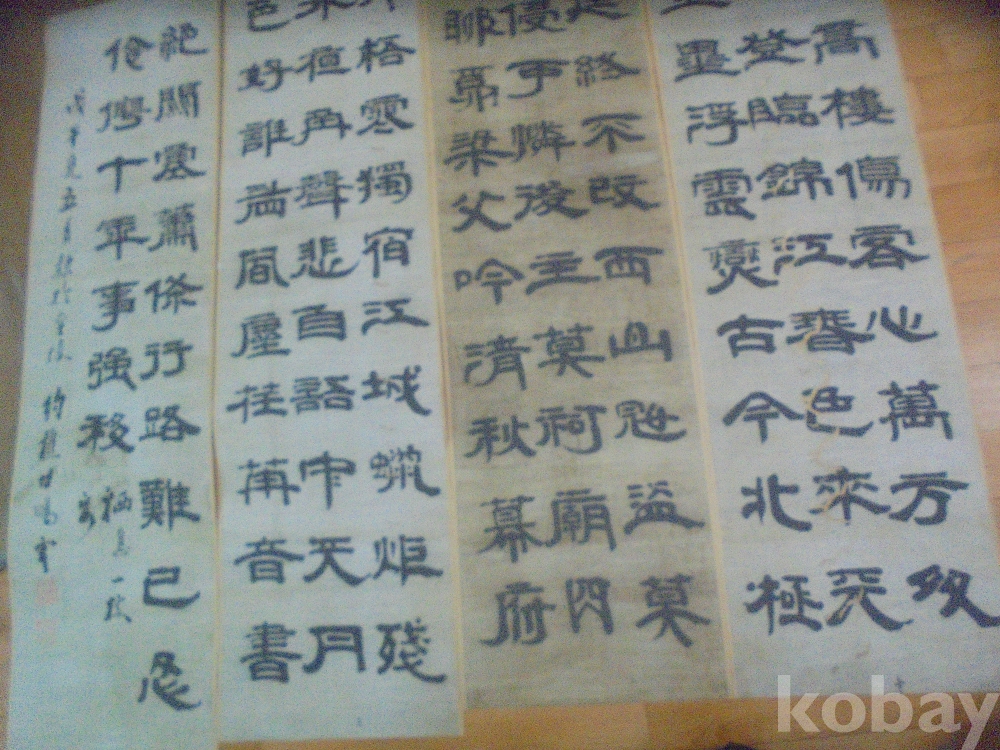 高樓傷客心萬方多
登臨錦江春色來天
壘浮雲變古今北極
廷終不改西山寇盜莫
侵可憐後主莫祠廟
聊為梁父吟清秋幕府
井梧寒獨宿江城蠟炬殘
永夜角聲悲自語中天月
色好誰看風塵荏苒音書
絕關塞蕭條行路難已忍
伶俜十年事強移棲息一枝
安
戊午夏五月
kobay